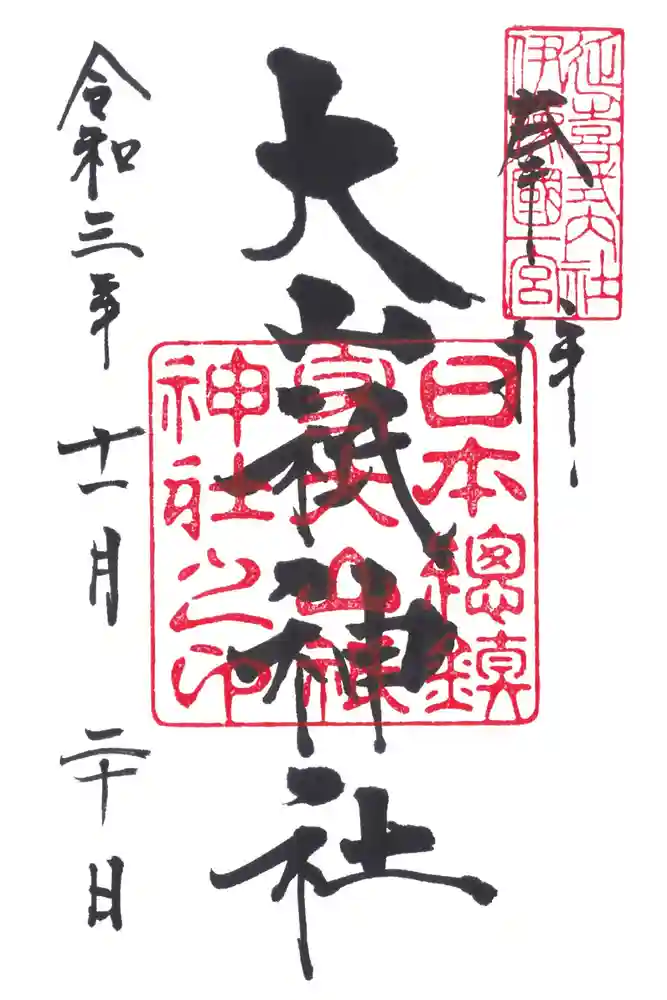 延喜式内社
伊豫國一宮
奉拝
日本總鎮
守大山積
神社之印
大山祇神社
令和三年十一月二十日